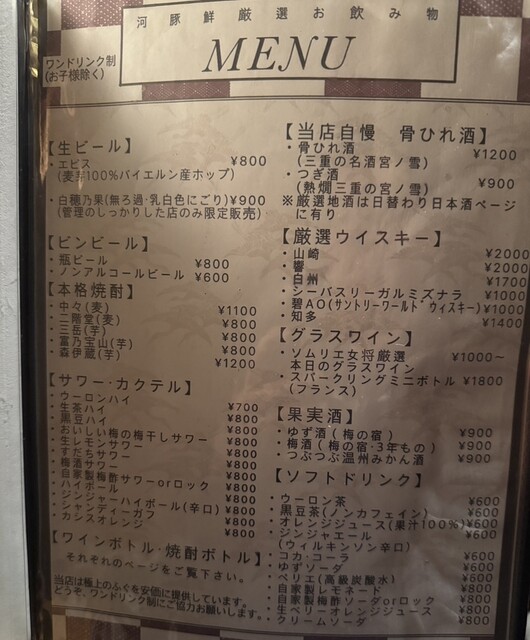 河豚鮮厳選お飲み物
MENU
ワンドリンク制
(お子様除く)
【生ビール】
・エビス ¥800
(麦芽100%バイエルン産ホップ)
・白穂乃果(無ろ過・乳白色にごり)¥900
(管理のしっかりした店のみ限定販売)
【ビンビール】
・瓶ビール ¥800
・ノンアルコールビール ¥600
【本格焼酎】
・中々(麦) ¥1100
・二階堂(麦) ¥800
・三岳(芋) ¥800
・富乃宝山(芋) ¥800
・森伊蔵(芋) ¥1200
【サワー・カクテル】
・ウーロンハイ ¥700
・生茶ハイ ¥800
・黒豆ハイ ¥800
・おいしい梅の梅干しサワー ¥800
・生レモンサワー ¥800
・すだちサワー ¥800
・梅酒サワー ¥800
・自家製梅酢サワーorロック ¥800
・ハイボール ¥800
・ジンジャーハイボール(辛口) ¥800
・シャンディーガフ ¥800
・カシスオレンジ ¥800
【ワインボトル・焼酎ボトル】
それぞれのページをご覧下さい。
当店は極上のふぐを安価に提供しています。
どうぞ、ワンドリンク制にご協力お願いします。
【当店自慢 骨ひれ酒】
・骨ひれ酒 ¥1200
(三重の名酒宮ノ雪)
・つぎ酒 ¥900
(熱燗三重の宮ノ雪)
※厳選地酒は日替わり日本酒ページ
に有り
【厳選ウイスキー】
・山崎 ¥2000
・響 ¥2000
・白州 ¥1700
・シーバスリーガルミズナラ ¥1000
・碧AO(サントリーワールドウィスキー)¥1000
・知多 ¥1400
【グラスワイン】
・ソムリエ女将厳選 ¥1000～
本日のグラスワイン
・スパークリングミニボトル ¥1800
(フランス)
【果実酒】
・ゆず酒(梅の宿) ¥900
・梅酒(梅の宿・3年もの) ¥900
・つぶつぶ温州みかん酒 ¥900
【ソフトドリンク】
・ウーロン茶 ¥600
・黒豆茶(ノンカフェイン) ¥600
・オレンジジュース(果汁100%)¥600
・ジンジャエール ¥600
(ウィルキンソン辛口)
・コカ・コーラ ¥600
・ゆずソーダ ¥600
・ペリエ(高級炭酸水) ¥600
・自家製レモネード ¥800
・自家製梅酢ソーダorロック ¥800
・生ベリーオレンジジュース ¥800
・クリームソーダ ¥800